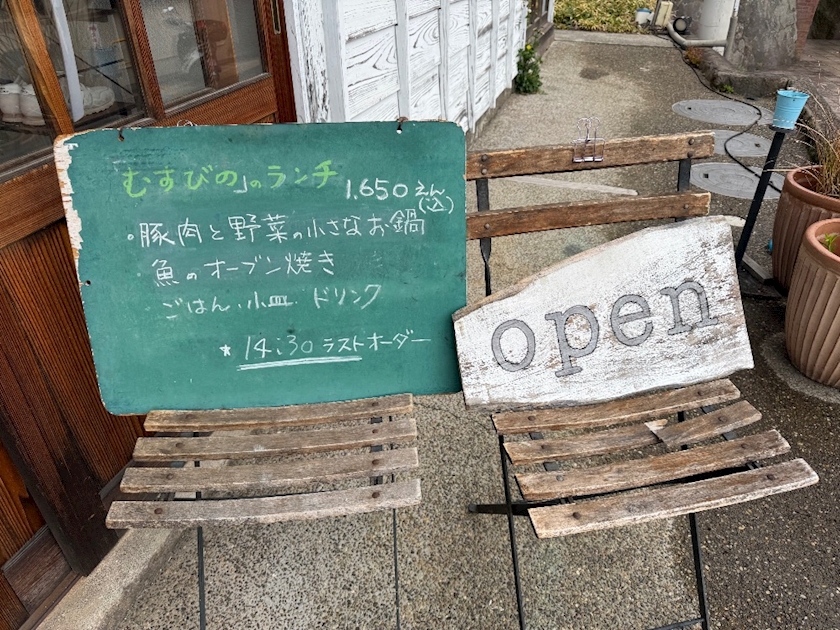 「むすびの」のランチ 1,650えん
(込)
・豚肉と野菜の小さなお鍋
魚のオーブン焼き
ごはん・小皿 ドリンク
★ 14:30 ラストオーダー
open